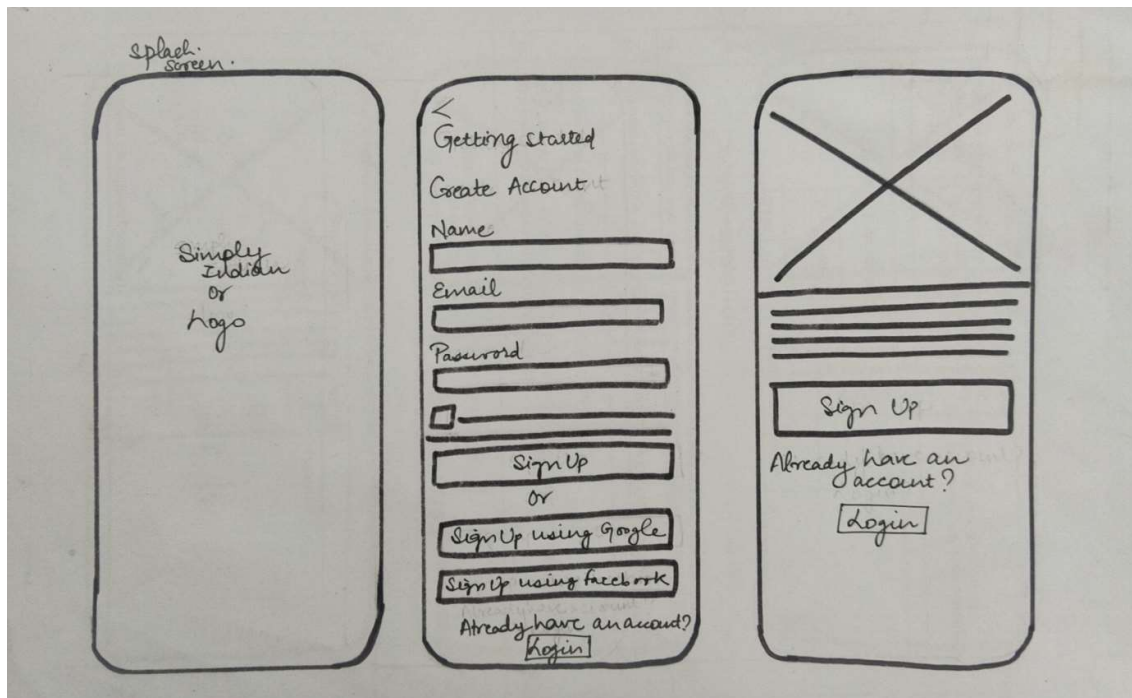 Splash
Screen.
Simply
Indian
Or
Logo
<
Getting Started
Create Account
Name
Email
Password
Sign Up
Or
Sign Up using Google
Sign Up using facebook
Already have an account?
Login
Sign Up
Already have an
account?
Login